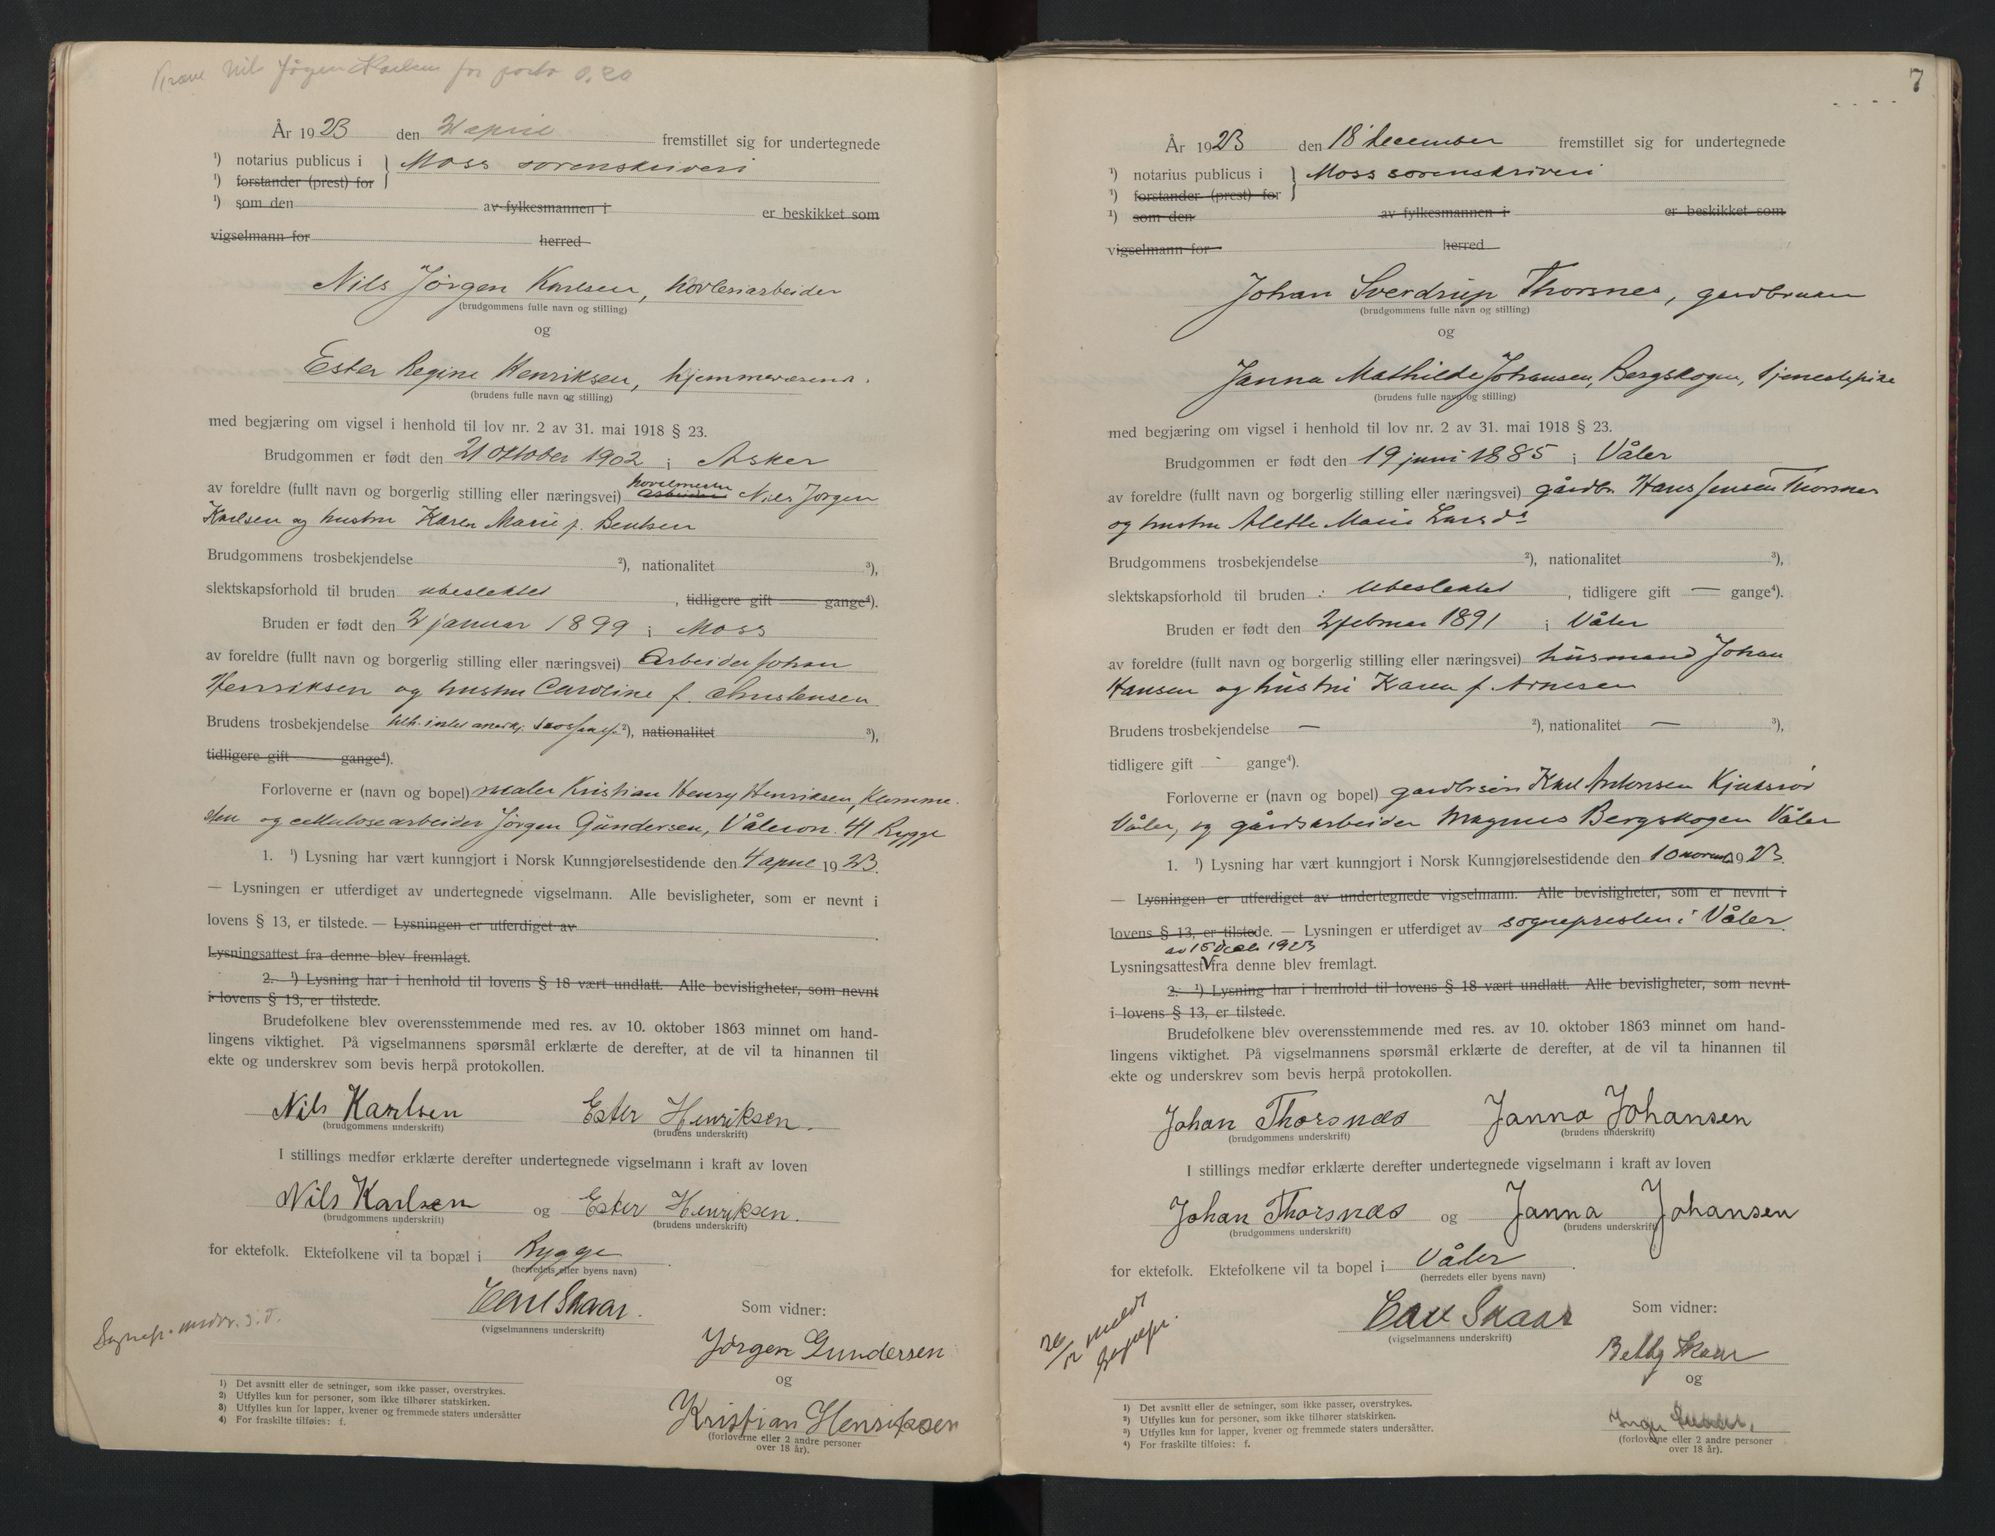 Nils Jørgen Karlsen for porto 0,20
År 1923 den 21 april fremstillet sig for undertegnede
¹) notarius publicus i } Moss sorenskriveri
¹) forstander (prest) for
¹) som den av fylkesmannen i er beskikket som
vigselmann for herred
Nils Jörgen Karlsen, høvleriarbeider
(brudgommens fulle navn og stilling)
og
Ester Regine Henriksen, hjemmeværende
(brudens fulle navn og stilling)
med begjæring om vigsel i henhold til lov nr. 2 av 31. mai 1918 § 23.
Brudgommen er født den 21 oktober 1902 i Asker
høvelmester
av foreldre (fullt navn og borgerlig stilling eller næringsvei) arbeider Nils Jørgen
Karlsen og hustru Karen Marie f. Bentsen
Brudgommens trosbekjendelse ²), nationalitet ³),
slektskapsforhold til bruden ubeslektet, tidligere gift gange⁴).
Bruden er født den 2 januar 1899 i Moss
av foreldre (fullt navn og borgerlig stilling eller næringsvei) Arbeider Johan
Henriksen og hustru Caroline f. Christensen
Brudens trosbekjendelse ²), nationalitet ³),
tidligere gift gange⁴).
Forloverne er (navn og bopel) maler Kristian Henry Henriksen,
og cellulosearbeider Jörgen Gundersen, 41 Rygge
1. ¹) Lysning har vært kunngjort i Norsk Kunngjørelsestidende den 4 april 1923.
— Lysningen er utferdiget av undertegnede vigselmann. Alle bevisligheter, som er nevnt i
lovens § 13, er tilstede. — Lysningen er utferdiget av
Lysningsattest fra denne blev fremlagt.
2. ¹) Lysning har i henhold til lovens § 18 vært undlatt. Alle bevisligheter, som nevnt
i lovens § 13, er tilstede.
Brudefolkene blev overensstemmende med res. av 10. oktober 1863 minnet om hand-
lingens viktighet. På vigselmannens spørsmål erklærte de derefter, at de vil ta hinannen til
ekte og underskrev som bevis herpå protokollen.
Nils Karlsen Ester Henriksen.
(brudgommens underskrift) (brudens underskrift)
I stillings medfør erklærte derefter undertegnede vigselmann i kraft av loven
Nils Karlsen og Ester Henriksen.
(brudgommens underskrift) (brudens underskrift)
for ektefolk. Ektefolkene vil ta bopæl i Rygge.
(herredets eller byens navn)
Carl Skaar. Som vidner:
(vigselmannens underskrift)
Jörgen Gundersen
og
Kristian Henriksen
(forloverne eller 2 andre personer
over 18 år).
1) Det avsnitt eller de setninger, som ikke passer, overstrykes.
2) Utfylles kun for personer, som ikke tilhører statskirken.
3) Utfylles kun for lapper, kvener og fremmede staters undersåtter
4) For fraskilte tilføies: f.
7
År 1923 den 18 december fremstillet sig for undertegnede
¹) notarius publicus i } Moss sorenskriveri
¹) forstander (prest) for
¹) som den av fylkesmannen i er beskikket som
vigselmann for herred
Johan Sverdrup Thorsnes, gardbruker
(brudgommens fulle navn og stilling)
og
Janna Mathilde Johansen, Bergskogen, tjenestepike
(brudens fulle navn og stilling)
med begjæring om vigsel i henhold til lov nr. 2 av 31. mai 1918 § 23.
Brudgommen er født den 19 juni 1885 i Våler
av foreldre (fullt navn og borgerlig stilling eller næringsvei) gårdbr Hans Jensen Thorsnes
og hustru Alette Marie Larsdr
Brudgommens trosbekjendelse ²), nationalitet ³),
slektskapsforhold til bruden : Ubeslektet, tidligere gift — gange⁴).
Bruden er født den 2 februar 1891 i Våler
av foreldre (fullt navn og borgerlig stilling eller næringsvei) husmand Johan
Hansen og hustru Karen f. Arnesen
Brudens trosbekjendelse — ²), nationalitet — ³),
tidligere gift - gange⁴).
Forloverne er (navn og bopel) gardbrsön Karl Antonsen
Våler, og gårdsarbeider Magnus Bergskogen Våler
1. ¹) Lysning har vært kunngjort i Norsk Kunngjørelsestidende den 10 novem 1923.
— Lysningen er utferdiget av undertegnede vigselmann. Alle bevisligheter, som er nevnt i
lovens § 13, er tilstede. — Lysningen er utferdiget av sognepresten i Våler
av 15 Decb 1923
Lysningsattest fra denne blev fremlagt.
2. ¹) Lysning har i henhold til lovens § 18 vært undlatt. Alle bevisligheter, som nevnt
i lovens § 13, er tilstede.
Brudefolkene blev overensstemmende med res. av 10. oktober 1863 minnet om hand-
lingens viktighet. På vigselmannens spørsmål erklærte de derefter, at de vil ta hinannen til
ekte og underskrev som bevis herpå protokollen.
Johan Thorsnæs Janna Johansen
(brudgommens underskrift) (brudens underskrift)
I stillings medfør erklærte derefter undertegnede vigselmann i kraft av loven
Johan Thorsnæs og Janna Johansen
(brudgommens underskrift) (brudens underskrift)
for ektefolk. Ektefolkene vil ta bopel i Våler.
(herredets eller byens navn)
Carl Skaar Som vidner:
(vigselmannens underskrift)
20/12 meldt
sognepr.
Betty Skaar
og
Inga
(forloverne eller 2 andre personer
over 18 år).
1) Det avsnitt eller de setninger, som ikke passer, overstrykes.
2) Utfylles kun for personer, som ikke tilhører statskirken.
3) Utfylles kun for lapper, kvener og fremmede staters undersåtter.
4) For fraskilte tilføies: f.